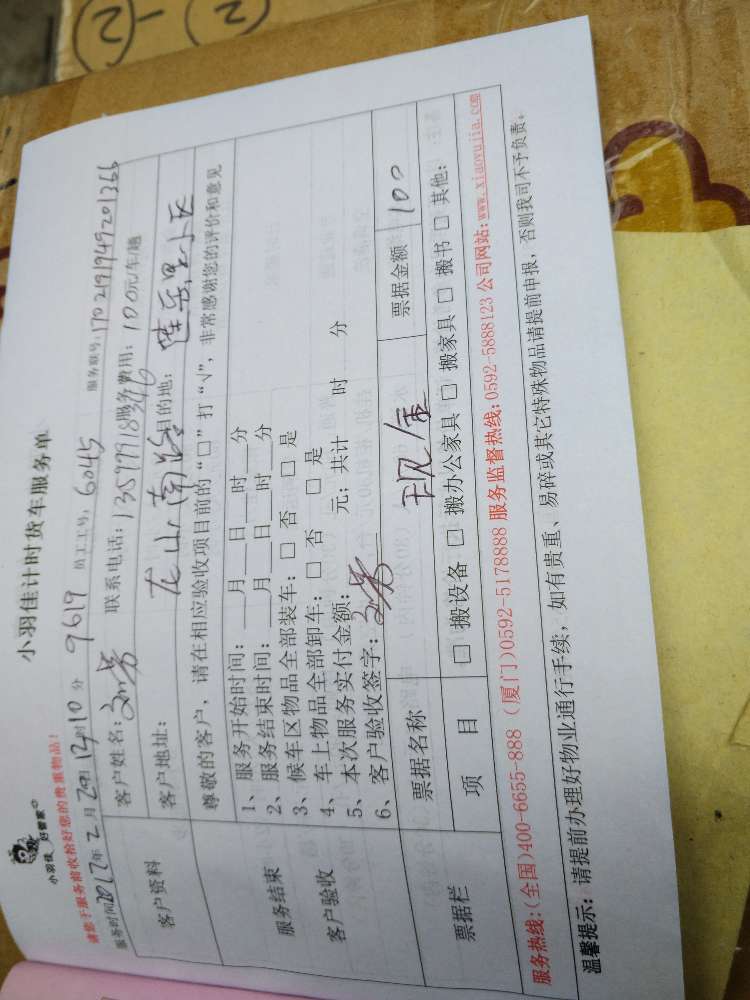 ②-②
小羽佳 好管家
小羽佳计时货车服务单
请您于服务前收拾好您的贵重物品!
服务联号:1702191949201366
服务时间2017年2月20日12时10分 9619 员工工号:6045
客户资料
客户姓名: 联系电话:13599918346 服务费用:100元/车/趟
客户地址: 龙山南路 目的地:
尊敬的客户,请在相应验收项目前的“口”打“√”,非常感谢您的评价和意见
服务结束
客户验收
1、服务开始时间:__月__日__时__分
2、服务结束时间:__月__日__时__分
3、候车区物品全部装车:□ 否 □ 是
4、车上物品全部卸车:□ 否 □ 是
5、本次服务实付金额: 元;共计 时 分
6、客户验收签字:
票据栏
票据名称 现金 票据金额 100
项目 □ 搬设备 □ 搬办公家具 □ 搬家具 □ 搬书 □ 其他:
服务热线:(全国)400-6655-888 (厦门)0592-5178888 服务监督热线:0592-5888123 公司网站:www.xiaoyujia.com
温馨提示:请提前办理好物业通行手续,如有贵重、易碎或其它特殊物品请提前申报,否则我司不予负责。